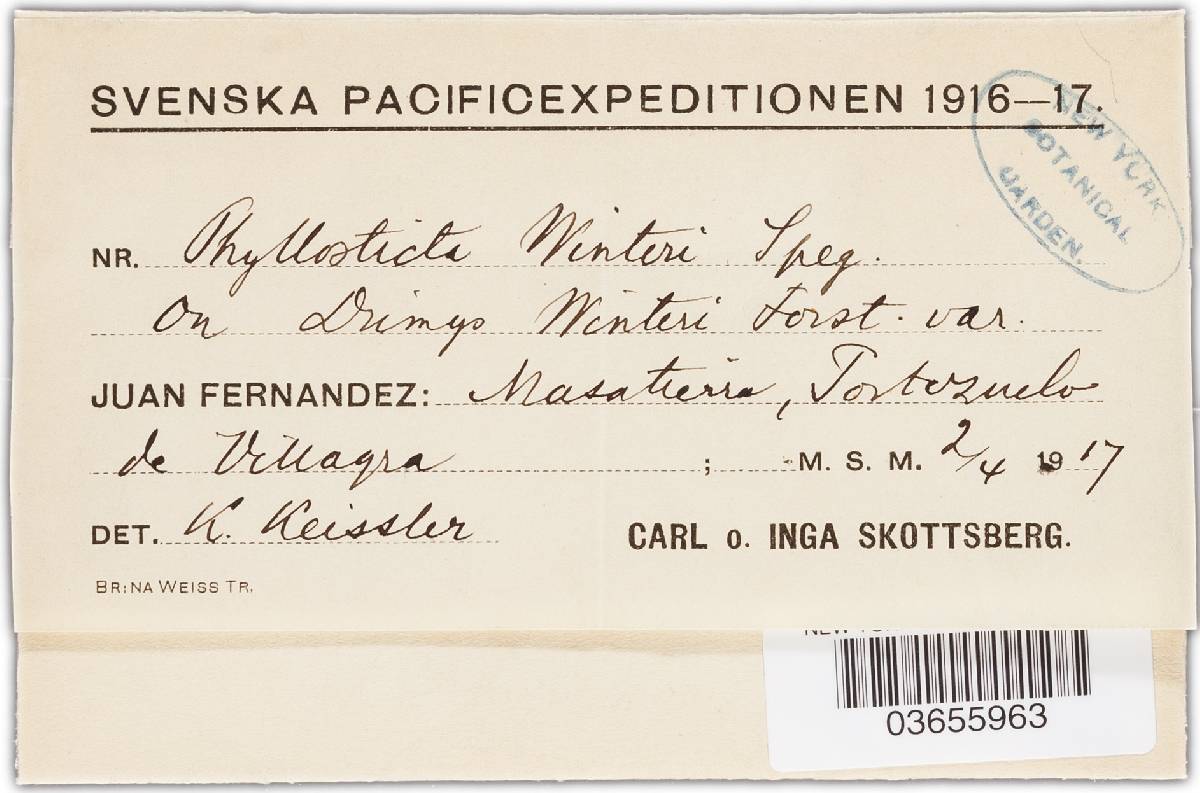 SVENSKA PACIFICEXPEDITIONEN 1916—17.
NEW YORK
BOTANICAL
GARDEN.
NR. Phyllosticta Winteri Speg.
On Drimys Winteri Forst. var.
JUAN FERNANDEZ: Masatierra, Portezuelo
de Villagra ; M. S. M. 2/4 1917
DET. K. Keissler CARL o. INGA SKOTTSBERG.
BR:NA WEISS TR.
03655963